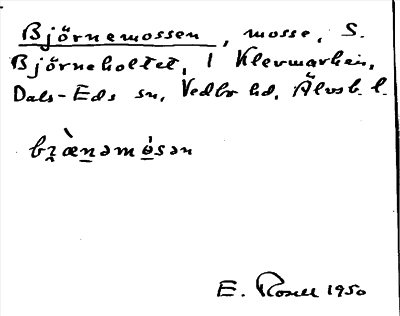 Björnemossen, mosse, S.
Björneholtet, 1 Klevmarken,
Dals-Eds sn, Vedbo hd, Älvsb. l.
bȥæ̀nəmósən
E. Rosell 1950